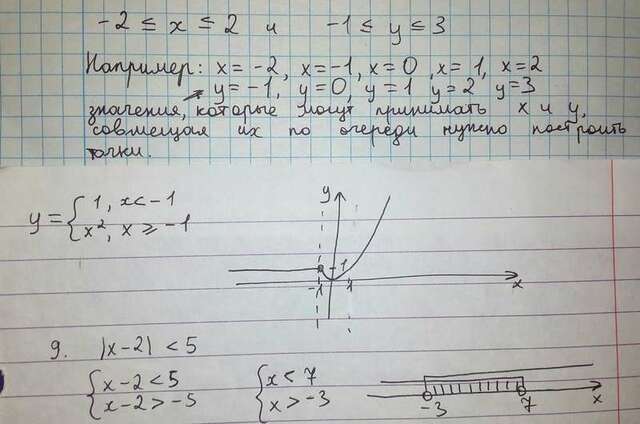 -2 ≤ x ≤ 2 и -1 ≤ y ≤ 3
Например: x = -2, x = -1, x = 0, x = 1, x = 2
y = -1, y = 0, y = 1 y = 2 y = 3
значения, которые могут принимать x и y,
совмещая их по очереди нужно построить
точки.
y = { 1, x < -1
x², x ≥ -1
y
1
-1 1 x
9. |x-2| < 5
{ x-2 < 5 { x < 7
x-2 > -5 x > -3
-3 7 x